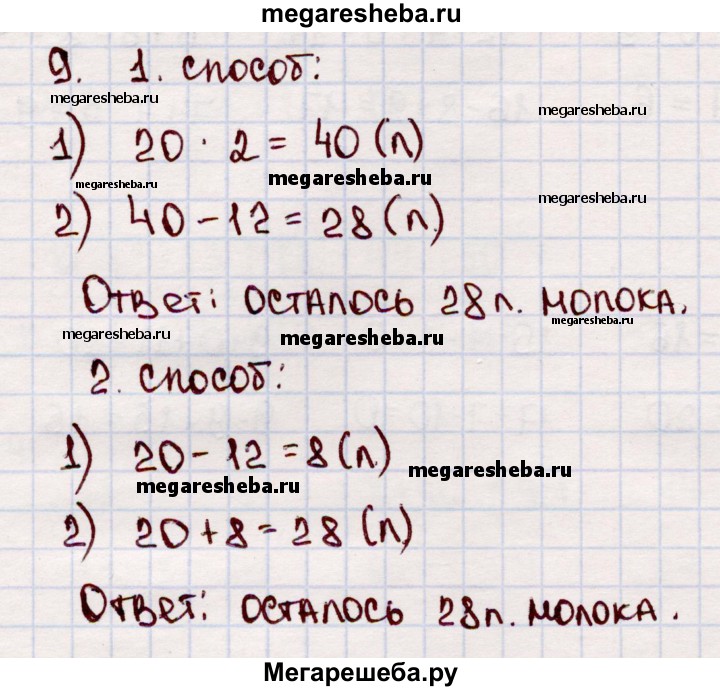 megaresheba.ru
9. 1. способ:
megaresheba.ru
megaresheba.ru
1) 20 · 2 = 40 (л)
megaresheba.ru
megaresheba.ru
megaresheba.ru
2) 40 - 12 = 28 (л.)
Ответ: осталось 28 л. молока.
megaresheba.ru
megaresheba.ru
megaresheba.ru
2. способ:
1) 20 - 12 = 8 (л.)
megaresheba.ru
megaresheba.ru
2) 20 + 8 = 28 (л)
Ответ: осталось 28 л. молока.
Мегарешеба.ру